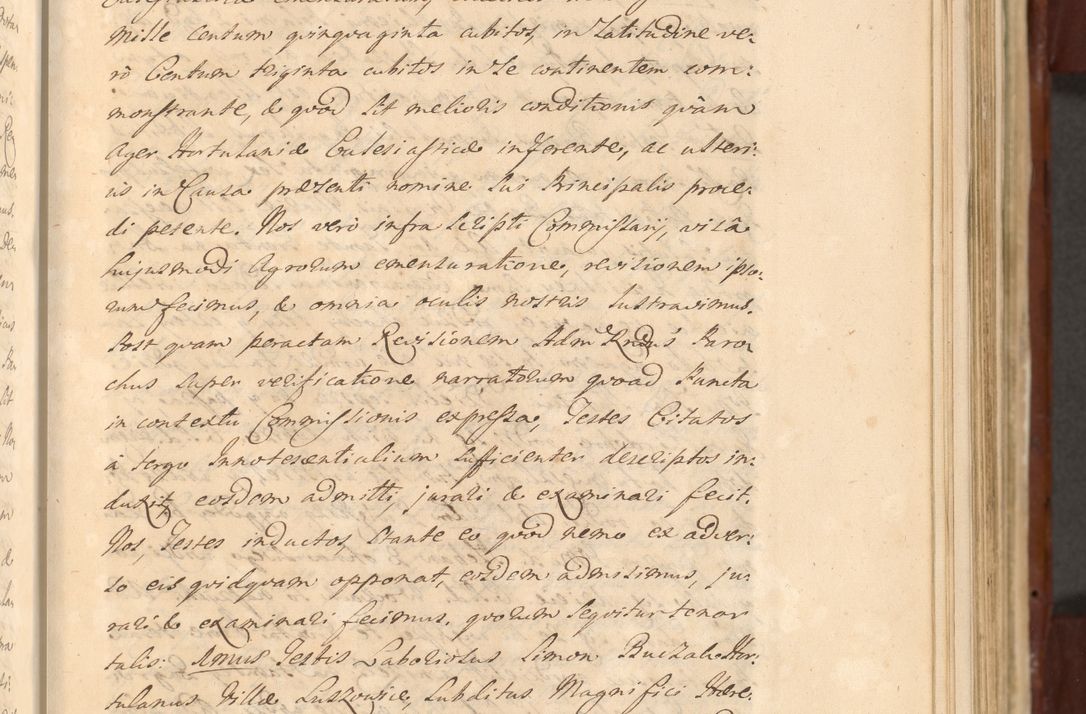 mille centum quinquaginta cubitos, in Latitudine ve:
rò Centum triginta cubitos in se continentem com:
monstrante, & quòd sit melioris conditionis quàm
Ager Hortulaniæ Ecclesiasticæ inferente, ac ulteri:
us in Causa præsenti nomine sui Principalis proce:
di petente. Nos verò infra scripti Commissarij, visâ
hujusmodi Agrorum emensuratione, revisionem ipso:
rum fecimus, & omnia oculis nostris lustravimus.
Post quam peractam Revisionem Adm Rndus Paro
chus super verificatione narratorum quoad Puncta
in contextu Commissionis expressa, Testes Citatos
à tergo Innotescentialium sufficienter descriptos in:
duxit, eosdem admitti, jurari & examinari fecit.
Nos, Testes inductos, stante eo quòd nemo ex adver:
so eis quidquam opponat, eosdem admisimus, ju
rari & examinari fecimus. quorum sequitur tenor
talis: Imus Testis Laboriosus Simon Buczak Hor:
tulanus Villæ Luszowice, subditus Magnifici Hære: